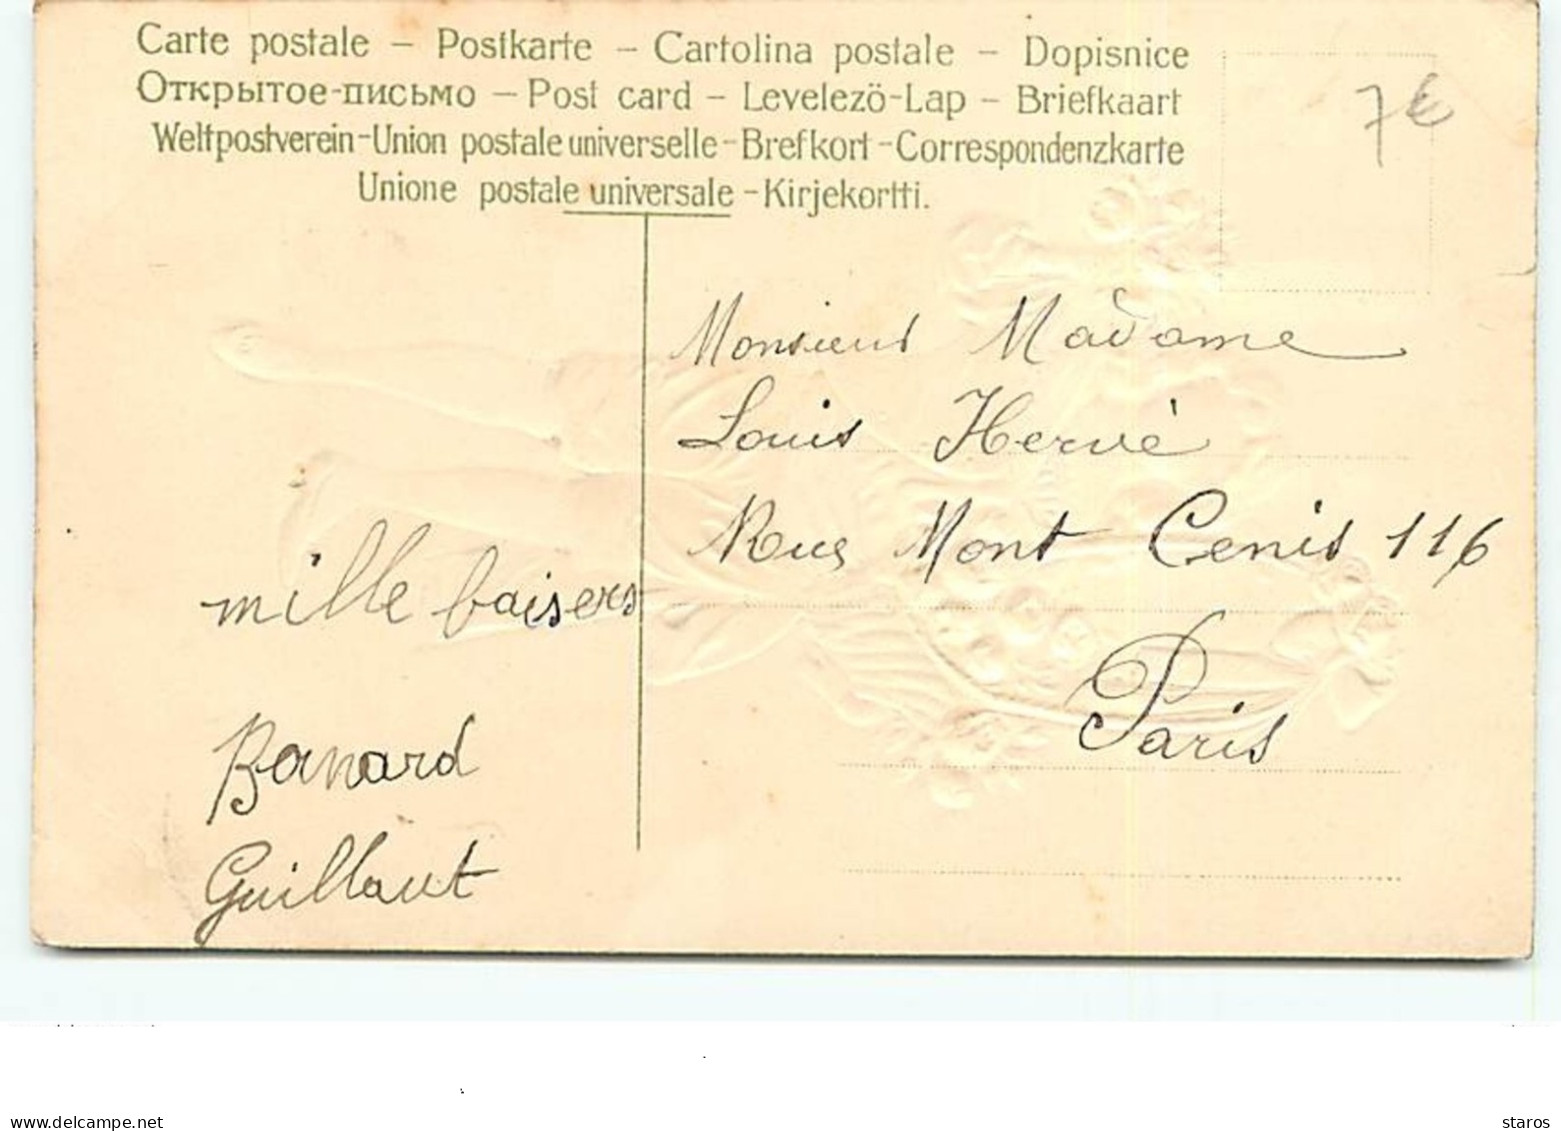 Carte postale – Postkarte – Cartolina postale – Dopisnice
Открытое-письмо – Post card – Levelezö-Lap – Briefkaart
Weltpostverein-Union postale universelle-Brefkort-Correspondenzkarte
Unione postale universale-Kirjekortti.
7€
Monsieur Madame
Louis Hervé
Rue Mont Cenis 116
Paris
mille baisers
Bernard
Guillaut
www.delcampe.net
staros